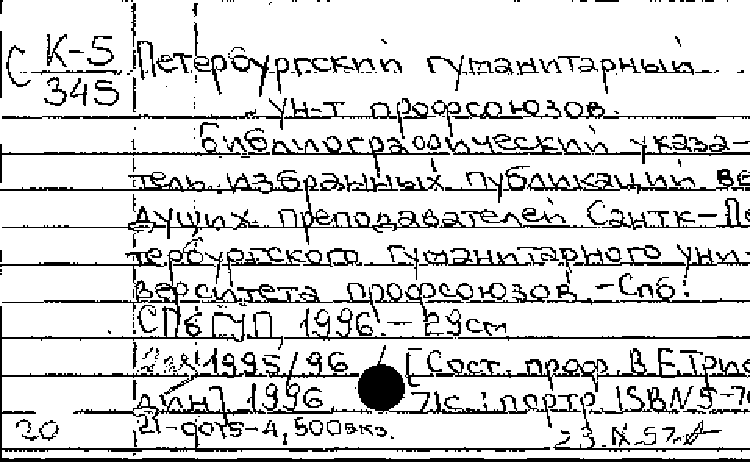 С К-5
345
Петербургский гуманитарный
ун-т профсоюзов.
Библиографический указа-
тель избранных публикаций ве-
дущих преподавателей Санкт-Пе
тербургского гуманитарного уни-
верситета профсоюзов.-Спб:
СПбГУП, 1996.-29см
1995/96 [Сост. проф. В.Е.Трио
дин] 1996 71с.:портр ISBN5-7
20 4,500экз.
23.IX.97г.